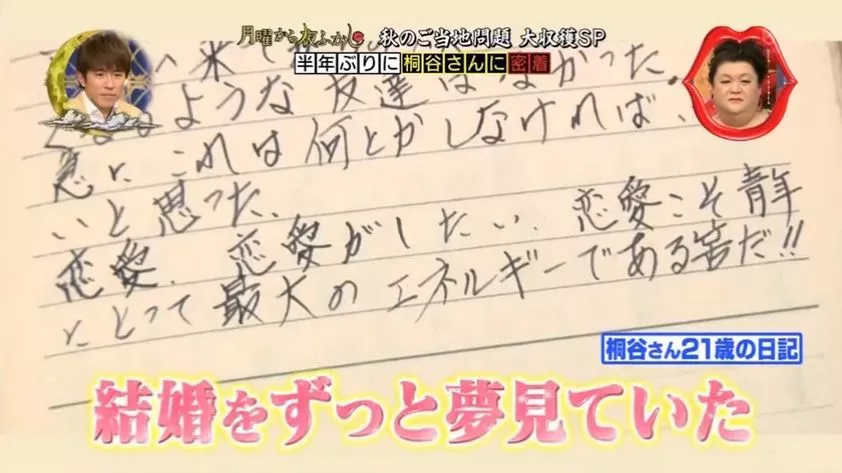 月曜から夜ふかし 秋のご当地問題 大収穫SP
半年ぶりに桐谷さんに密着
ような友達はなかった。
急にこれは何とかしなければ、
いと思った、
恋愛、恋愛がしたい、恋愛こそ青年
にとって最大のエネルギーである筈だ!!
桐谷さん21歳の日記
結婚をずっと夢見ていた